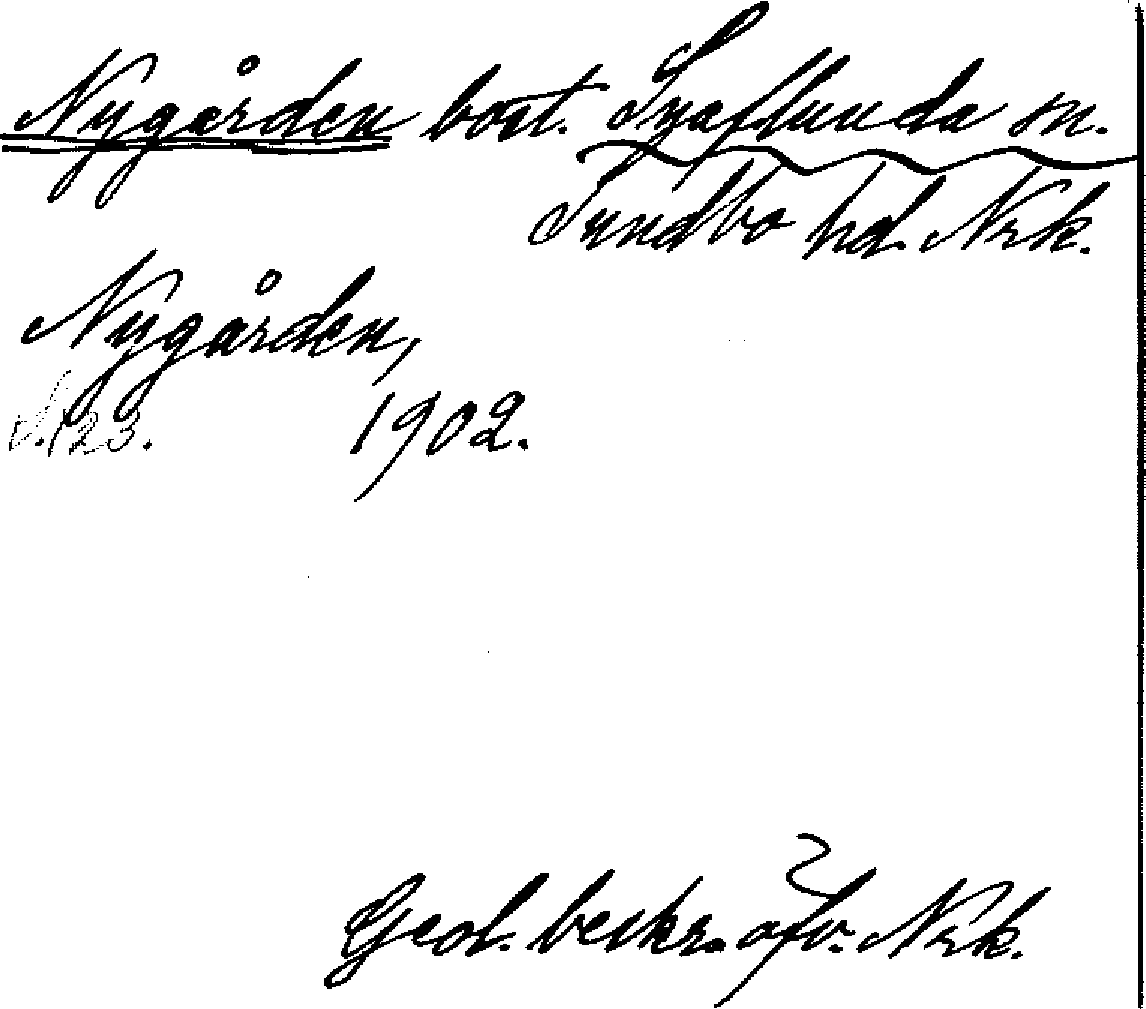 Nygården bost. Snaflunda sn.
Sundbo hd. Nrk.
Nygården,
S. 123. 1902.
Geol. beskr. öfv. Nrk.